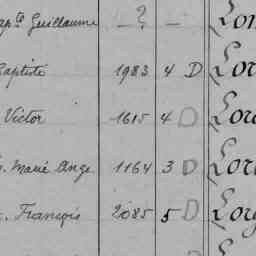 Guillaume ? — Lo
aptiste 1983 4 D Lor
Victor 1615 4 D Lor
Marie Ange 1164 3 D Lor
François 2085 5 D Lor